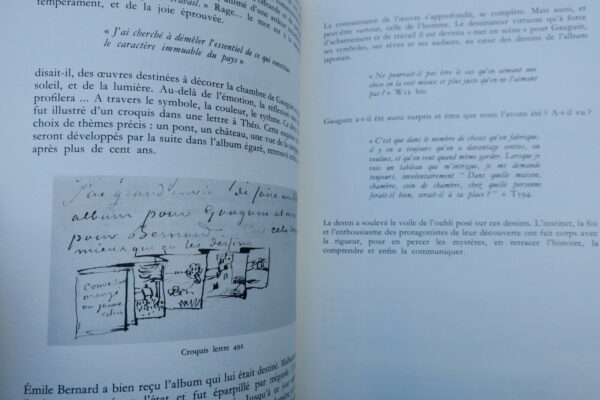 tempérament, et de la joie éprouvée.
« J'ai cherché à démêler l'essentiel de ce qui constitue
le caractère immuable du pays »
disait-il, des œuvres destinées à décorer la chambre de Gauguin
soleil, et de la lumière. Au-delà de l'émotion, la réflexion
profilera ... A travers le symbole, la couleur, le rythme. Ce
fut illustré d'un croquis dans une lettre à Théo. Cette
choix de thèmes précis : un pont, un château, une vue de la
seront développés par la suite dans l'album égaré, retrouvé
après plus de cent ans.
J'ai grand envie de faire
album pour Gauguin et
pour Bernard
les dessins
Couverture
orange
ou jaune
Croquis lettre 492
Émile Bernard a bien reçu l'album qui lui était destiné.
l'état et fut éparpillé par mégarde.
La connaissance de l'œuvre s'approfondit, se complète. Mais aussi, et
peut-être surtout, celle de l'homme. Le dessinateur virtuose qu'à force
d'acharnement et de travail il est devenu « met en scène » pour Gauguin,
ses symboles, ses rêves et ses audaces, au cœur des dessins de l'album
japonais.
« Ne pourrait-il pas être le cas qu'en aimant une
chose on la voit mieux et plus juste qu'en ne l'aimant
pas ? » W12 bis.
Gauguin a-t-il été aussi surpris et ému que nous l'avons été ? A-t-il vu ?
« C'est que dans le nombre de choses qu'on fabrique,
il y en a toujours qu'on a davantage senties, ou
voulues, et qu'on veut quand même garder. Lorsque je
vois un tableau qui m'intéresse, je me demande
toujours, involontairement " Dans quelle maison,
chambre, coin de chambre, chez quelle personne
ferait-il bien, serait-il à sa place ? " » T594.
Le destin a soulevé le voile de l'oubli posé sur ces dessins. L'instinct, la foi
et l'enthousiasme des protagonistes de leur découverte ont fait corps avec
la rigueur, pour en percer les mystères, en retracer l'histoire, la
comprendre et enfin la communiquer.